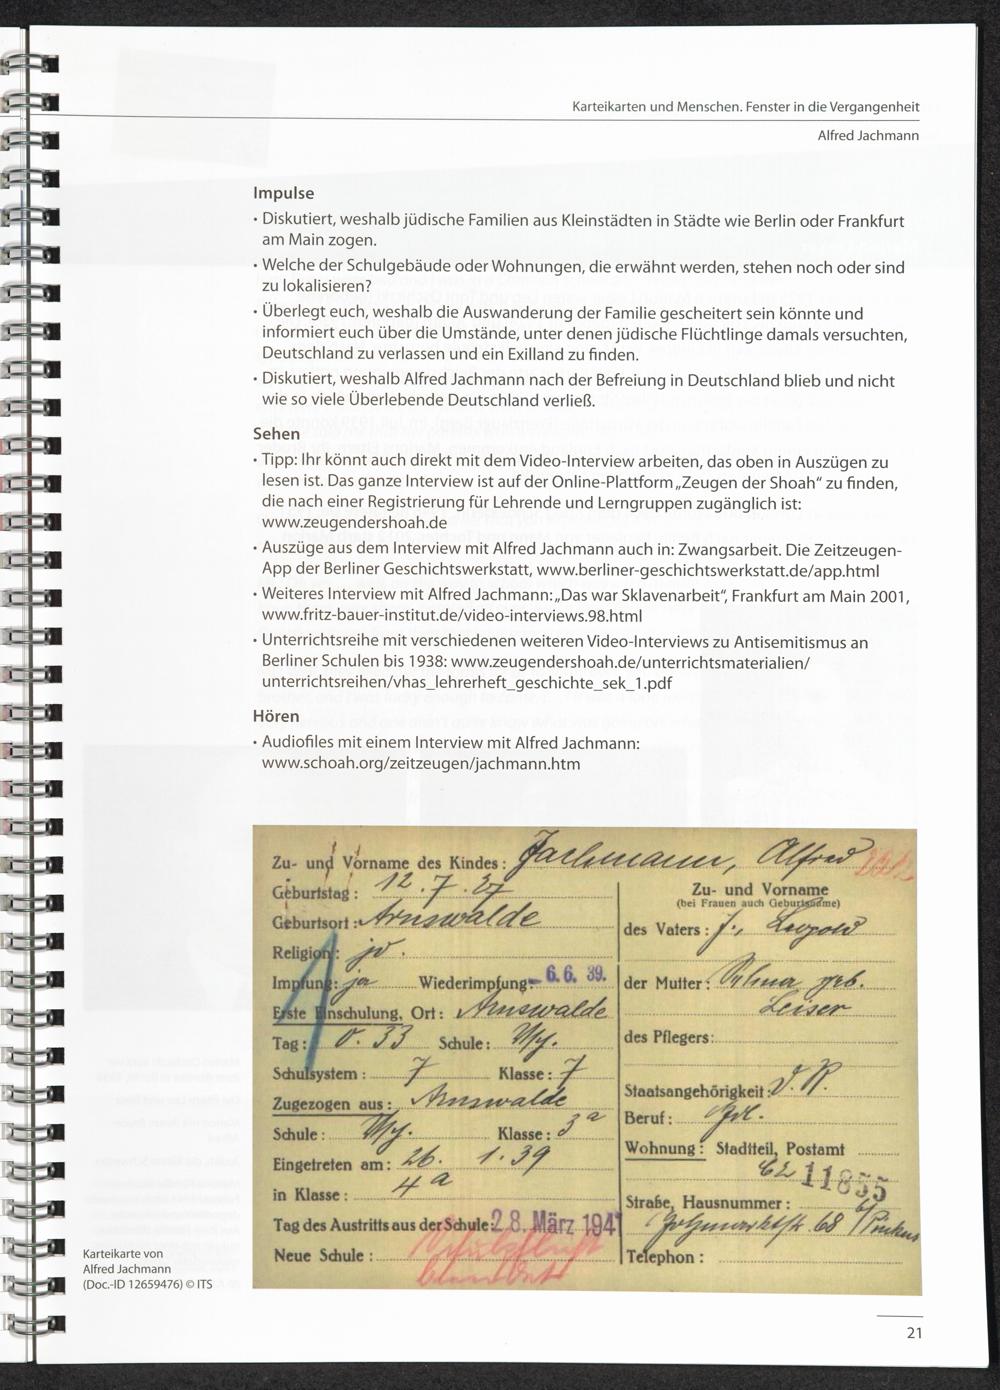 Karteikarten und Menschen. Fenster in die Vergangenheit
Alfred Jachmann
Impulse
• Diskutiert, weshalb jüdische Familien aus Kleinstädten in Städte wie Berlin oder Frankfurt
am Main zogen.
• Welche der Schulgebäude oder Wohnungen, die erwähnt werden, stehen noch oder sind
zu lokalisieren?
• Überlegt euch, weshalb die Auswanderung der Familie gescheitert sein könnte und
informiert euch über die Umstände, unter denen jüdische Flüchtlinge damals versuchten,
Deutschland zu verlassen und ein Exilland zu finden.
• Diskutiert, weshalb Alfred Jachmann nach der Befreiung in Deutschland blieb und nicht
wie so viele Überlebende Deutschland verließ.
Sehen
• Tipp: Ihr könnt auch direkt mit dem Video-Interview arbeiten, das oben in Auszügen zu
lesen ist. Das ganze Interview ist auf der Online-Plattform „Zeugen der Shoah“ zu finden,
die nach einer Registrierung für Lehrende und Lerngruppen zugänglich ist:
www.zeugendershoah.de
• Auszüge aus dem Interview mit Alfred Jachmann auch in: Zwangsarbeit. Die Zeitzeugen-
App der Berliner Geschichtswerkstatt, www.berliner-geschichtswerkstatt.de/app.html
• Weiteres Interview mit Alfred Jachmann: „Das war Sklavenarbeit“, Frankfurt am Main 2001,
www.fritz-bauer-institut.de/video-interviews.98.html
• Unterrichtsreihe mit verschiedenen weiteren Video-Interviews zu Antisemitismus an
Berliner Schulen bis 1938: www.zeugendershoah.de/unterrichtsmaterialien/
unterrichtsreihen/vhas_lehrerheft_geschichte_sek_1.pdf
Hören
• Audiofiles mit einem Interview mit Alfred Jachmann:
www.schoah.org/zeitzeugen/jachmann.htm
Zu- und Vorname des Kindes: Jachmann, Alfred
Geburtstag: 12. 7. 27
Geburtsort: Arnswalde
Religion: jd.
Impfung: ja Wiederimpfung: 6. 6. 39.
Erste Einschulung, Ort: Arnswalde
Tag: O. 33 Schule:
Schulsystem: 7 Klasse: 7
Zugezogen aus: Arnswalde
Schule: Klasse: 3a
Eingetreten am: 26. 1. 39
in Klasse: 4a
Tag des Austritts aus der Schule: 28. März 1941
Neue Schule: Schulpflicht
beendet
Zu- und Vorname
(bei Frauen auch Geburtsname)
des Vaters: J., Leopold
der Mutter: geb.
Leiser
des Pflegers:
Staatsangehörigkeit: D. R.
Beruf:
Wohnung: Stadtteil, Postamt
C2 11855
Straße, Hausnummer:
68 b/Pinkus
Telephon:
Karteikarte von
Alfred Jachmann
(Doc.-ID 12659476) © ITS
21